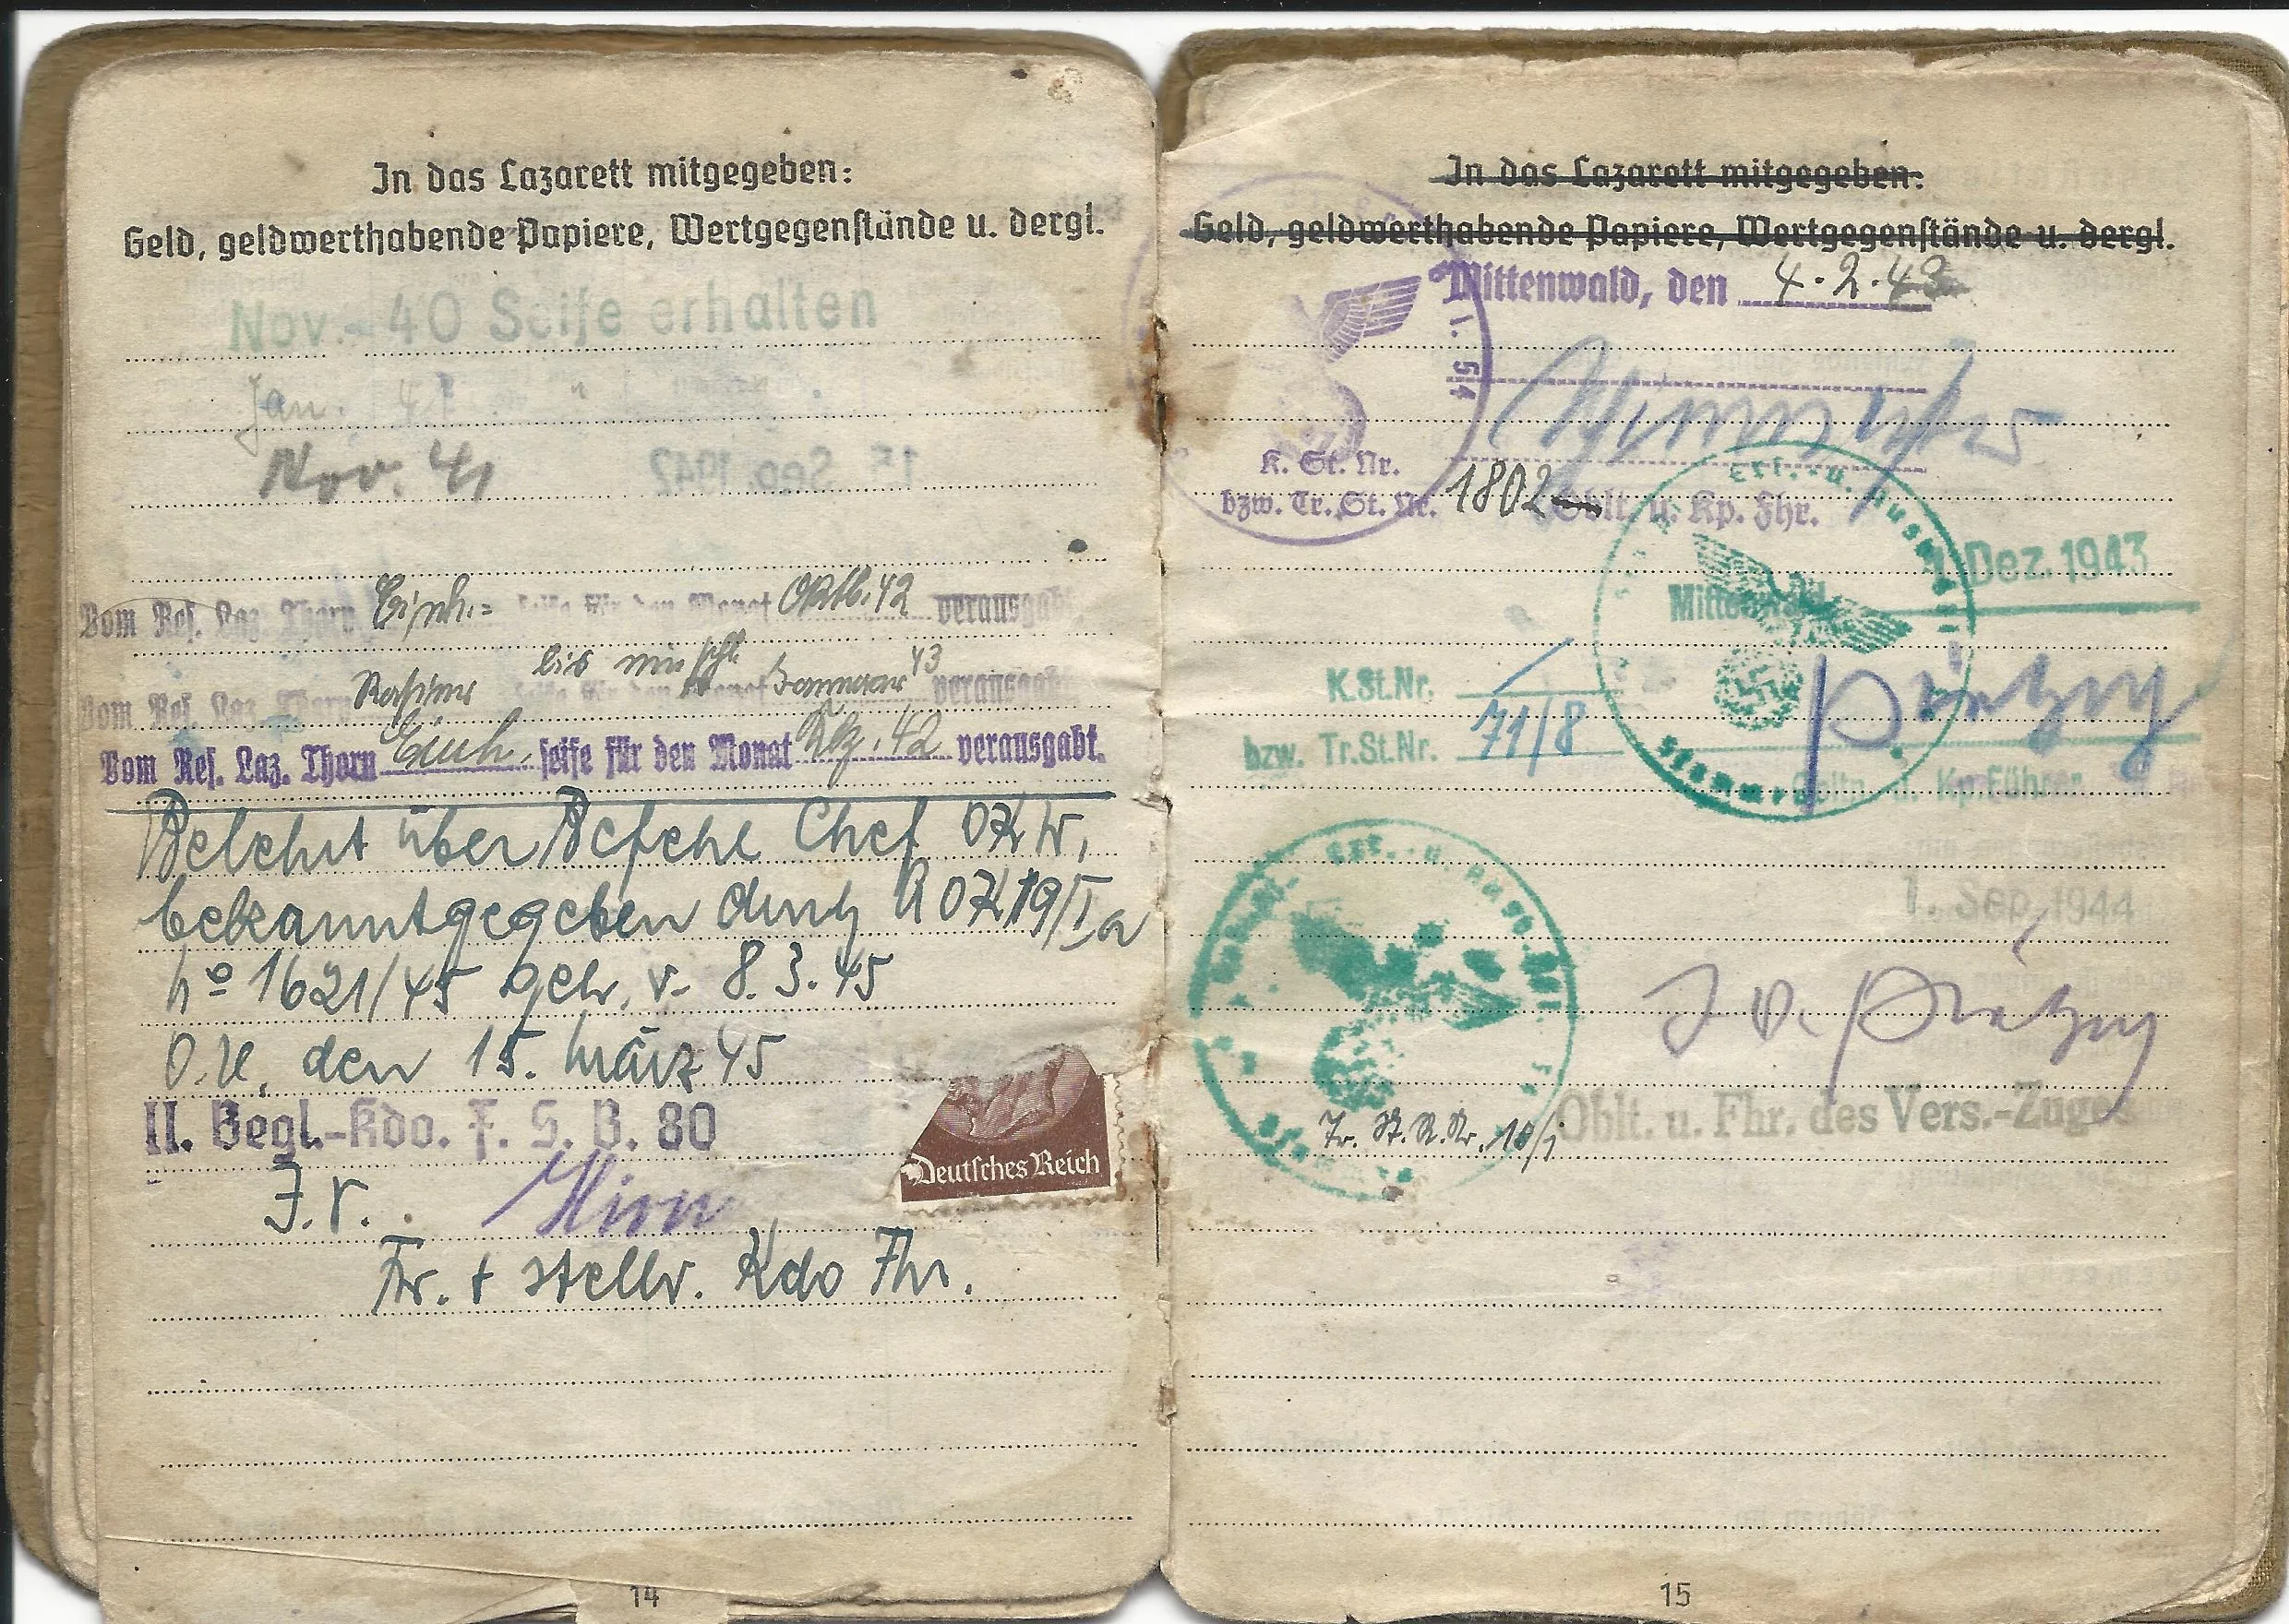 In das Lazarett mitgegeben:
Geld, geldwerthabende Papiere, Wertgegenstände u. dergl.
Nov. - 40 Seife erhalten
Jan. 41 "
Nov. 41
Vom Res. Laz. Thorn Einh.= seife für den Monat Oktb. 42 verausgabt.
Vom Res. Laz. Thorn Rasier seife für den Monat Januar 43 verausgabt.
bis
Vom Res. Laz. Thorn Einh. seife für den Monat Dez. 42 verausgabt.
Belehrt über Befehl Chef OKW,
bekanntgegeben durch AOK 19/Ia
No 1621/45 geh. v. 8.3.45
O.U. den 15. März 45
II. Begl.-Kdo. F. S. B. 80
J.V.
Fr. + stellv. Kdo Fhr.
Deutsches Reich
14
In das Lazarett mitgegeben:
Geld, geldwerthabende Papiere, Wertgegenstände u. dergl.
Mittenwald, den 4.2.43
54
K. St. Nr.
bzw. Tr. St. Nr. 1802
Oblt. u. Kp. Fhr.
1. Dez. 1943
Mittenwald
K.St.Nr.
bzw. Tr.St.Nr. 71/8
Ers.- u. Ausb.
Stamm
Obltn. u. Kp.Führer
1. Sep. 1944
J.V.
Oblt. u. Fhr. des Vers.-Zuges
Tr. St. N. Nr. 10/i
15